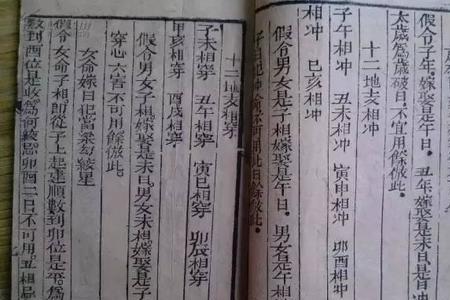 假令子年。嫁娶是午日。 丑年嫁娶是未日是日
太歲爲歲破日不宜用餘倣此。
十二地支相冲
子午相冲 丑未相冲 寅申相冲 卯酉相冲
相冲 巳亥相冲
假令男女是子相嫁娶是午日。男女是午相
可用此日餘倣此。
十二地支相穿
子未相穿 丑午相穿 寅巳相穿 卯辰相穿
申亥相穿 酉戌相穿
假令男女子相嫁娶是未日男女未相嫁娶是子
穿心六害不可用餘倣此
女命嫁日
假令女命子相即從子上起建順數到卯位是平爲
數到酉位是收爲 卯酉二日不可用。丑相